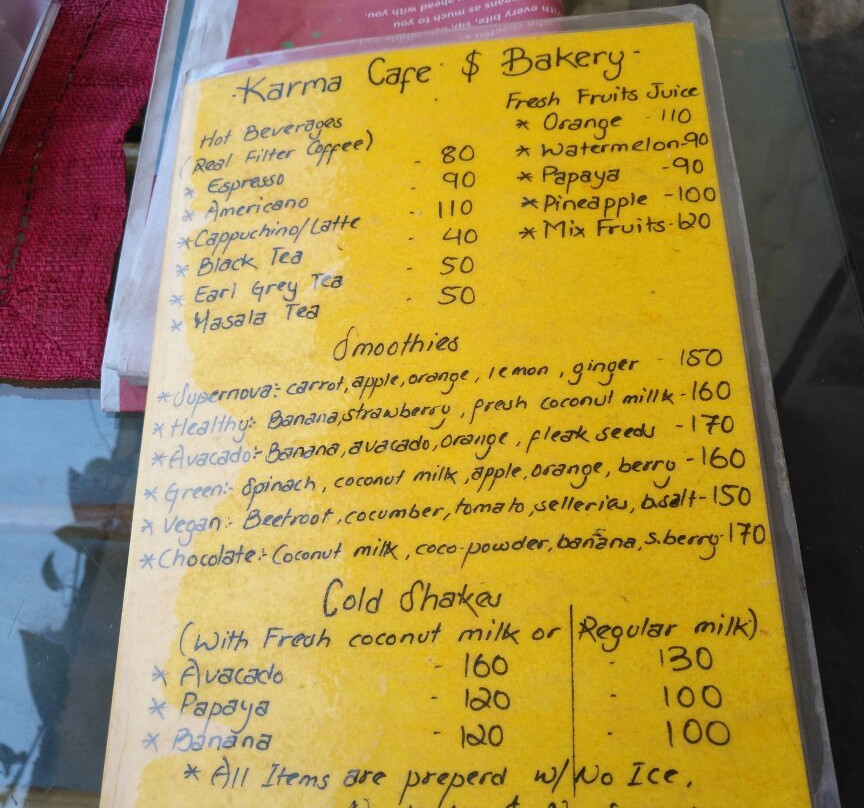 with every bite, sip,
eans as much to you
ahead with you.
Karma Cafe $ Bakery
Hot Beverages
(Real Filter Coffee)
* Espresso - 80
* Americano - 90
* Cappuchino/Latte - 110
* Black Tea - 40
* Earl Grey Tea - 50
* Masala Tea - 50
Fresh Fruits Juice
* Orange - 110
* Watermelon-90
* Papaya -90
* Pineapple -100
* Mix Fruits-120
Smoothies
* Supernova:- carrot, apple, orange, lemon, ginger - 150
* Healthy:- Banana, strawberry, fresh coconut millk -160
* Avacado:- Banana, avacado, orange, fleak seeds -170
* Green:- Spinach, coconut milk, apple, orange, berry -160
* Vegan:- Beetroot, cocumber, tomato, selleries, b.salt-150
* Chocolate:- Coconut milk, coco-powder, banana, s.berry-170
Cold Shakes
(With Fresh coconut milk or | Regular milk)
* Avacado - 160 - 130
* Papaya - 120 - 100
* Banana - 120 - 100
* All Items are preperd w/ No Ice,